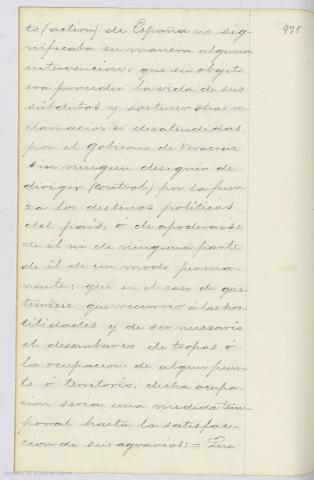 to (action) de España no sig- 998
nificaba en manera alguna
intervencion, que su objeto
era proceder la vida de sus
súbditos y sostener otras re
clamaciones desatendidas
por el gobierno de Veracruz
sin ningun designio de
dirigir (control) por la fuer
za los destinos políticos
del país, ó de apoderarse
de él ni de ninguna parte
de él de un modo perma-
nente: que en el caso de que
tuviese que recurrir á las hos
tilidades y de ser necesario
el desembarco de tropas ó
la ocupacion de algun pun-
to ó territorio, dicha ocupa
cion seria una medida tem
poral hasta la satisfac-
cion de sus agravios: = Que